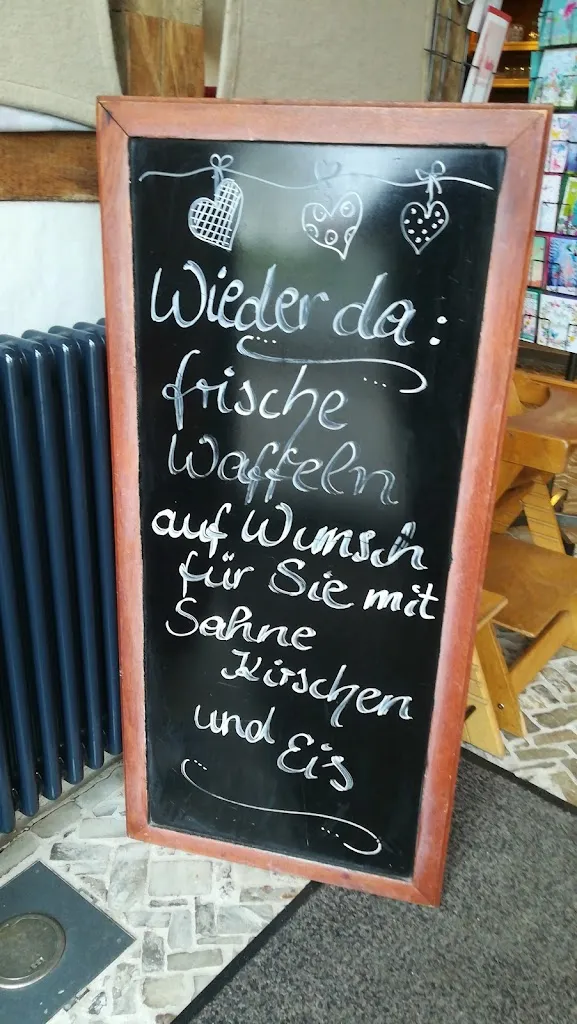 Wieder da:
frische
Waffeln
auf Wunsch
für Sie mit
Sahne
Kirschen
und Eis